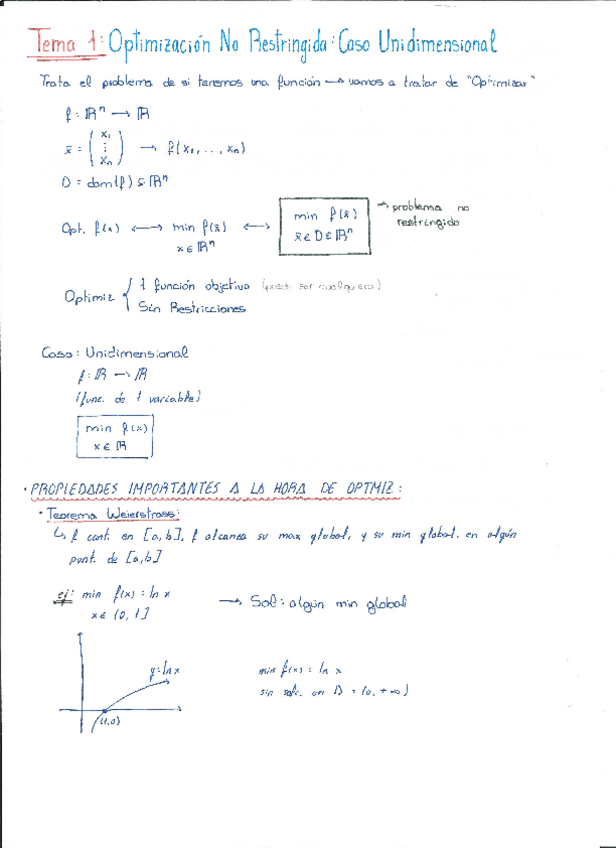 Tema 1: Optimización No Restringida: Caso Unidimensional
Trata el problema de si tenemos una función → vamos a tratar de "Optimizar"
f: ℝⁿ → ℝ
x̄ = (x₁ ⋮ xₙ) → f(x₁, ..., xₙ)
D = dom(f) ⊆ ℝⁿ
Opt. f(x) ↔ min f(x̄) ↔ min f(x̄) → problema no
x ∈ ℝⁿ x̄ ∈ D ∈ ℝⁿ restringido
Optimiz { 1 función objetivo (puede ser cualquiera)
Sin Restricciones
Caso: Unidimensional
f: ℝ → ℝ
(func. de 1 variable)
min f(x)
x ∈ ℝ
· PROPIEDADES IMPORTANTES A LA HORA DE OPTMIZ:
· Teorema Weierstrass:
↳ f cont. en [a,b], f alcanza su max global, y su min global, en algún
punt. de [a,b]
ej: min f(x) = ln x → Sol: algún min global
x ∈ (0, 1]
y=lnx
(1,0)
min f(x) = ln x
sin solc. en D = (0, +∞)